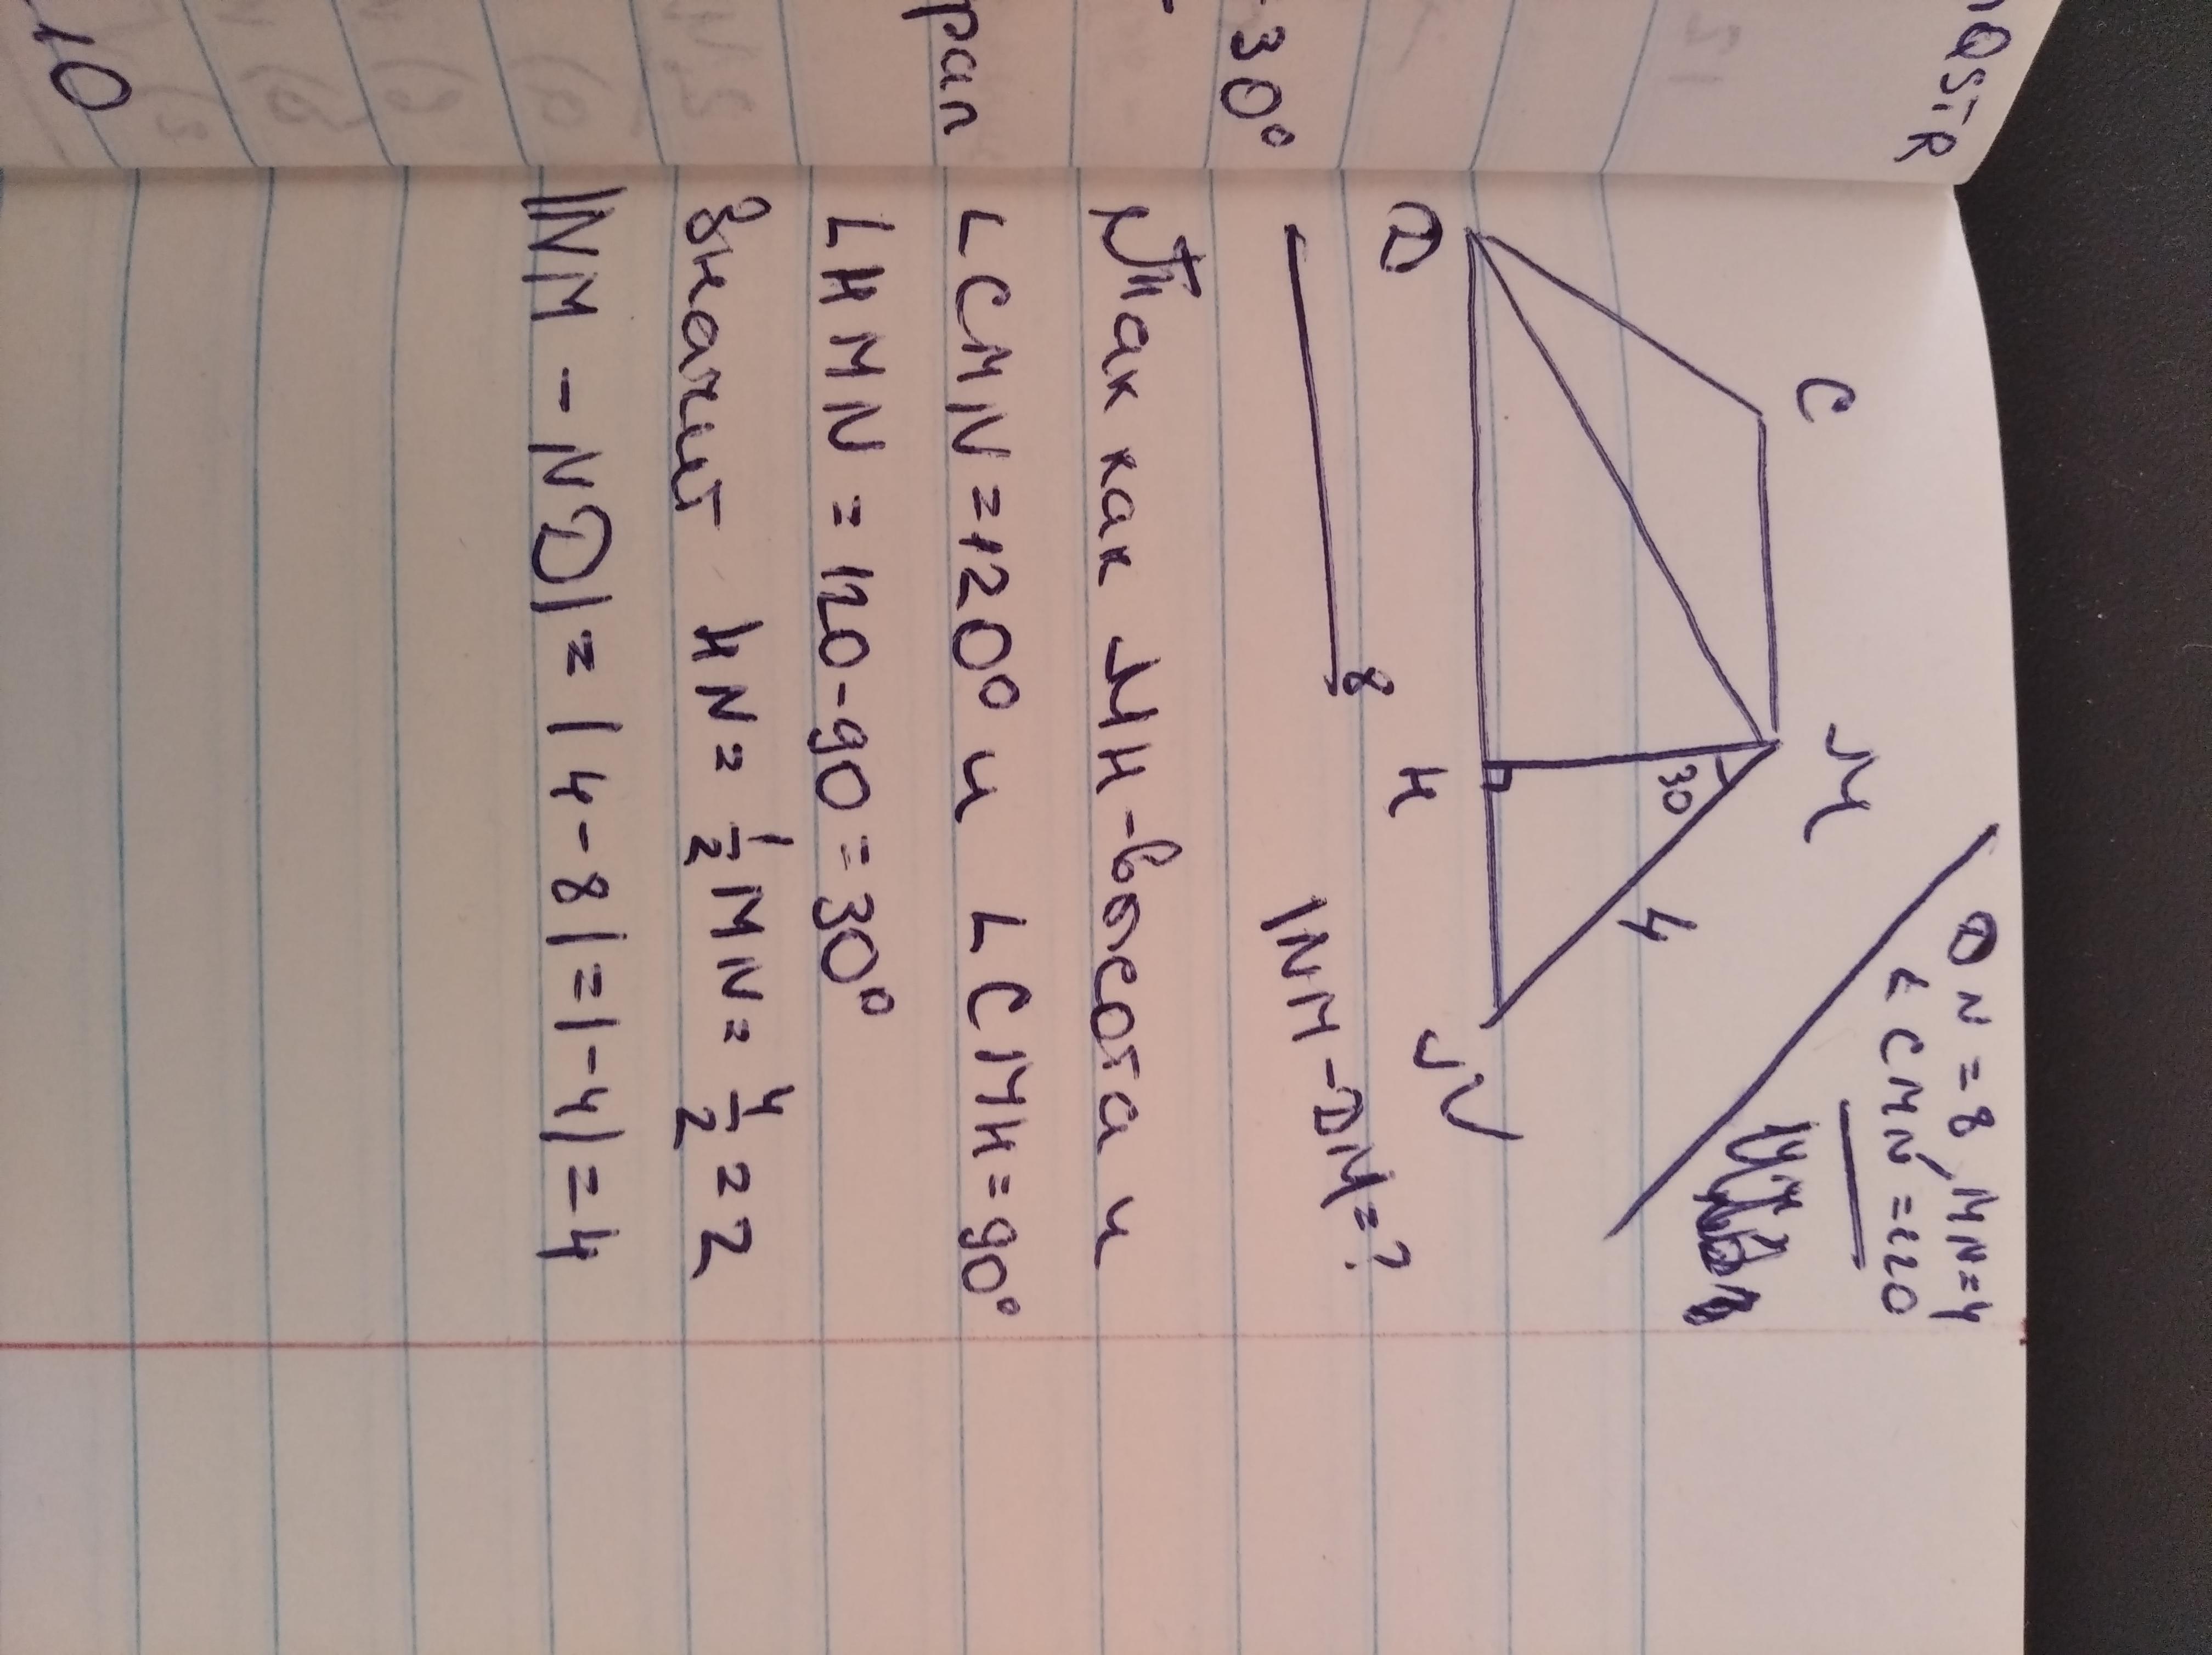 QSTR
-30°
рал
10
DN=8, MN=4
∠CMN=120
C
M
30
4
D
H
N
8
|NM-DM=?
Так как MH-высота и
∠CMN=120° и ∠CMH=90°
∠HMN=120-90=30°
Значит HN=1/2MN=4/2=2
|NM-ND|=|4-8|=|-4|=4